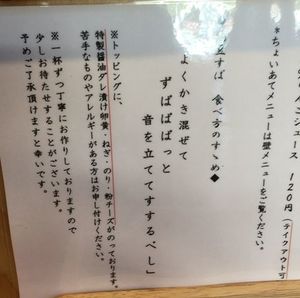 ンジュース 120円（テイクアウト可
＊ちょいあてメニューは壁メニューをご覧ください。
立すば 食べ方のすゝめ◆
よくかき混ぜて
ずばばばっと
音を立ててすするべし」
※トッピングに、
特製醤油ダレ漬け卵黄・ねぎ・のり・粉チーズがのっております。
苦手なものやアレルギーがある方はお申し付けください。
※一杯ずつ丁寧にお作りしておりますので
少しお待たせすることがございます。
予めご了承頂けますと幸いです。